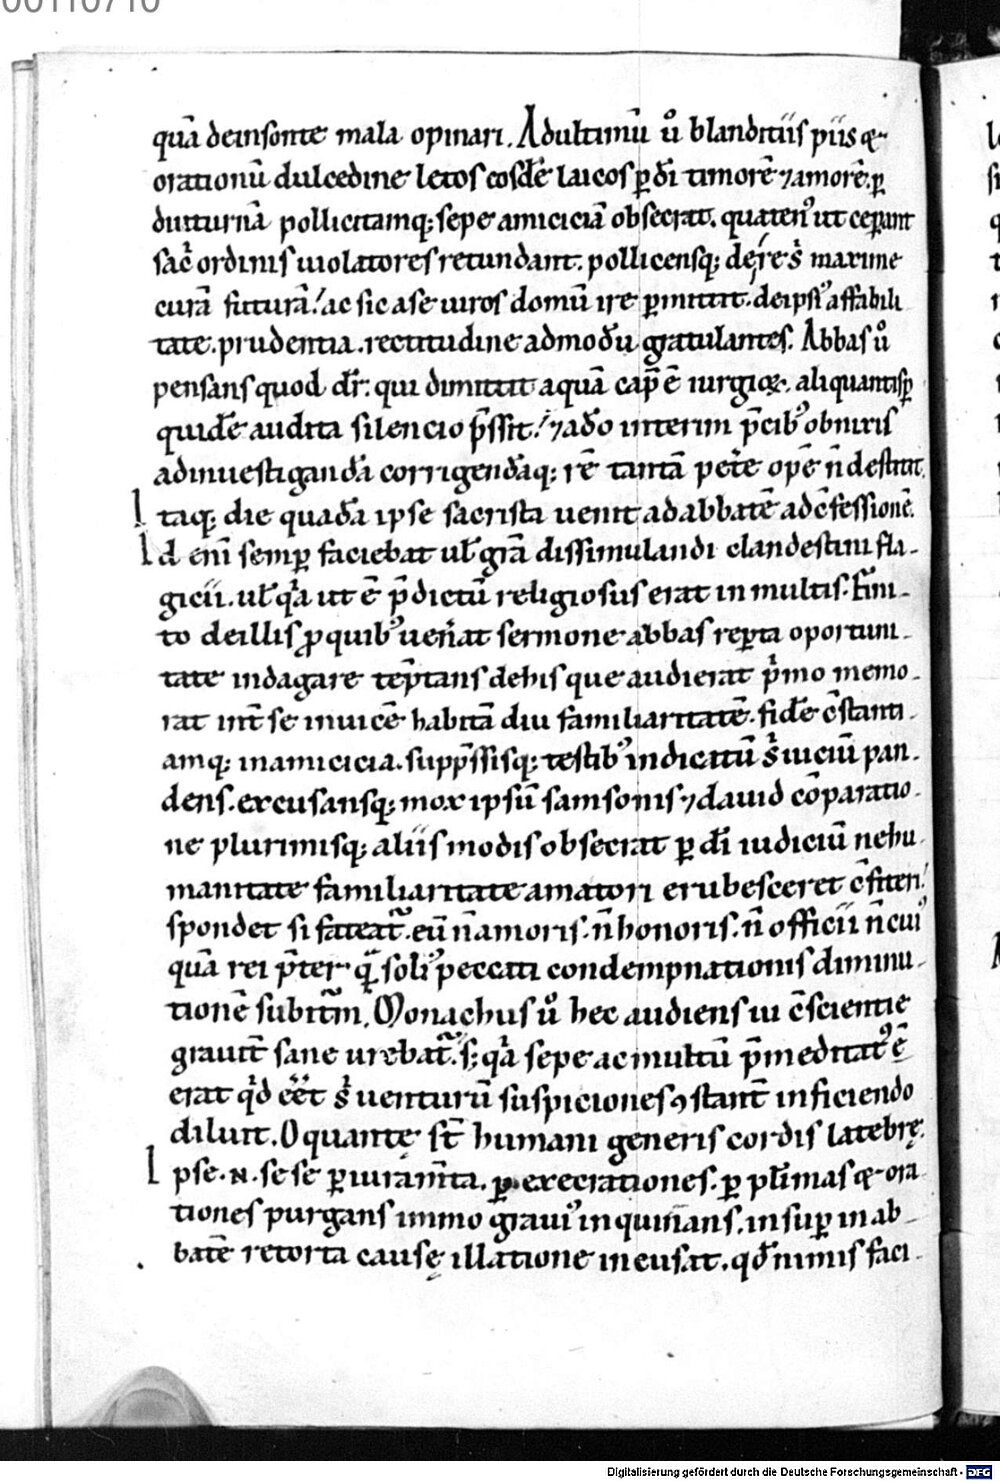 00110710
quā deinsonte mala opinari. Adultimū u͛o blanditiis piis et
orationū dulcedine letos eosdē laicos ꝑ dī timorē ⁊ amorē. ꝑ
diutturnā pollicitamq; sepe amiciciā obsecrat. quaten᷒ ut ceperant
sac̄ ordinis uiolatores retundant. pollicensq; de re sͥ maxime
curā futurā. ac sic a se uiros domū ire ꝑmittit. de ipsi᷒ affabili
tate. prudentia. rectitudine admodū gratulantes. Abbas uͦ
pensans quod dr̄: qui dimittit aquā cap̄ ē iurgioꝝ. aliquantisꝑ
quidē audita silencio p̄ssit. ⁊ a dō interim p̄cib᷒ obnixis
adinuestigandā corrigendāq; rē tantā petē opē n̄ destitit.
Itaq; die quadā ipse sacrista uenit ad abbatē ad c̄fessionē.
Id enī semꝑ faciebat ul̄ gr̄a dissimulandi clandestini fla-
gicii. ul̄ qͥa ut ē p̄dictū religiosus erat in multis. Fini-
to de illis ꝓ quib᷒ uen̄at sermone abbas reꝑta oportuni-
tate indagare temptans de his que audierat pͥmo memo-
rat int̄ se inuicē habitā diu familiaritatē. fidē c̄stanti-
amq; in amicicia. supp̄ssisq; testib᷒ indicatū sͥ uiciū pan-
dens. excusansq; mox ipsū samsonis ⁊ dauid cōparatio-
ne plurimisq; aliis modis obsecrat ꝑ dī iudiciū ne hu-
manitate familiaritate amatori erubesceret c̄fiteri.
spondet si fateat̄. eū n̄ amoris. n̄ honoris. n̄ officii n̄ cui᷒
quā rei p̄ter qͣ soli᷒ peccati condempnationis diminu-
tionē subitm̄. Monachus uͦ hec audiens ui c̄scientie
grauit̄ sane urebat̄. s; qͥa sepe ac multū p̄meditat᷒ ē
erat qͥd eēt sͥ uenturū suspiciones ꝯstant̄ inficiendo
diluit. O quantę st̄ humani generis cordis latebrę.
Ipse .n. sese ꝑ iuram̄ta. ꝑ execrationes. ꝑ pl̄imas et ora
tiones purgans immo graui᷒ inquinans. insuꝑ in ab-
batē retorta causę illatione incusat. qd̄ nimis faci-
Digitalisierung gefördert durch die Deutsche Forschungsgemeinschaft - DFG